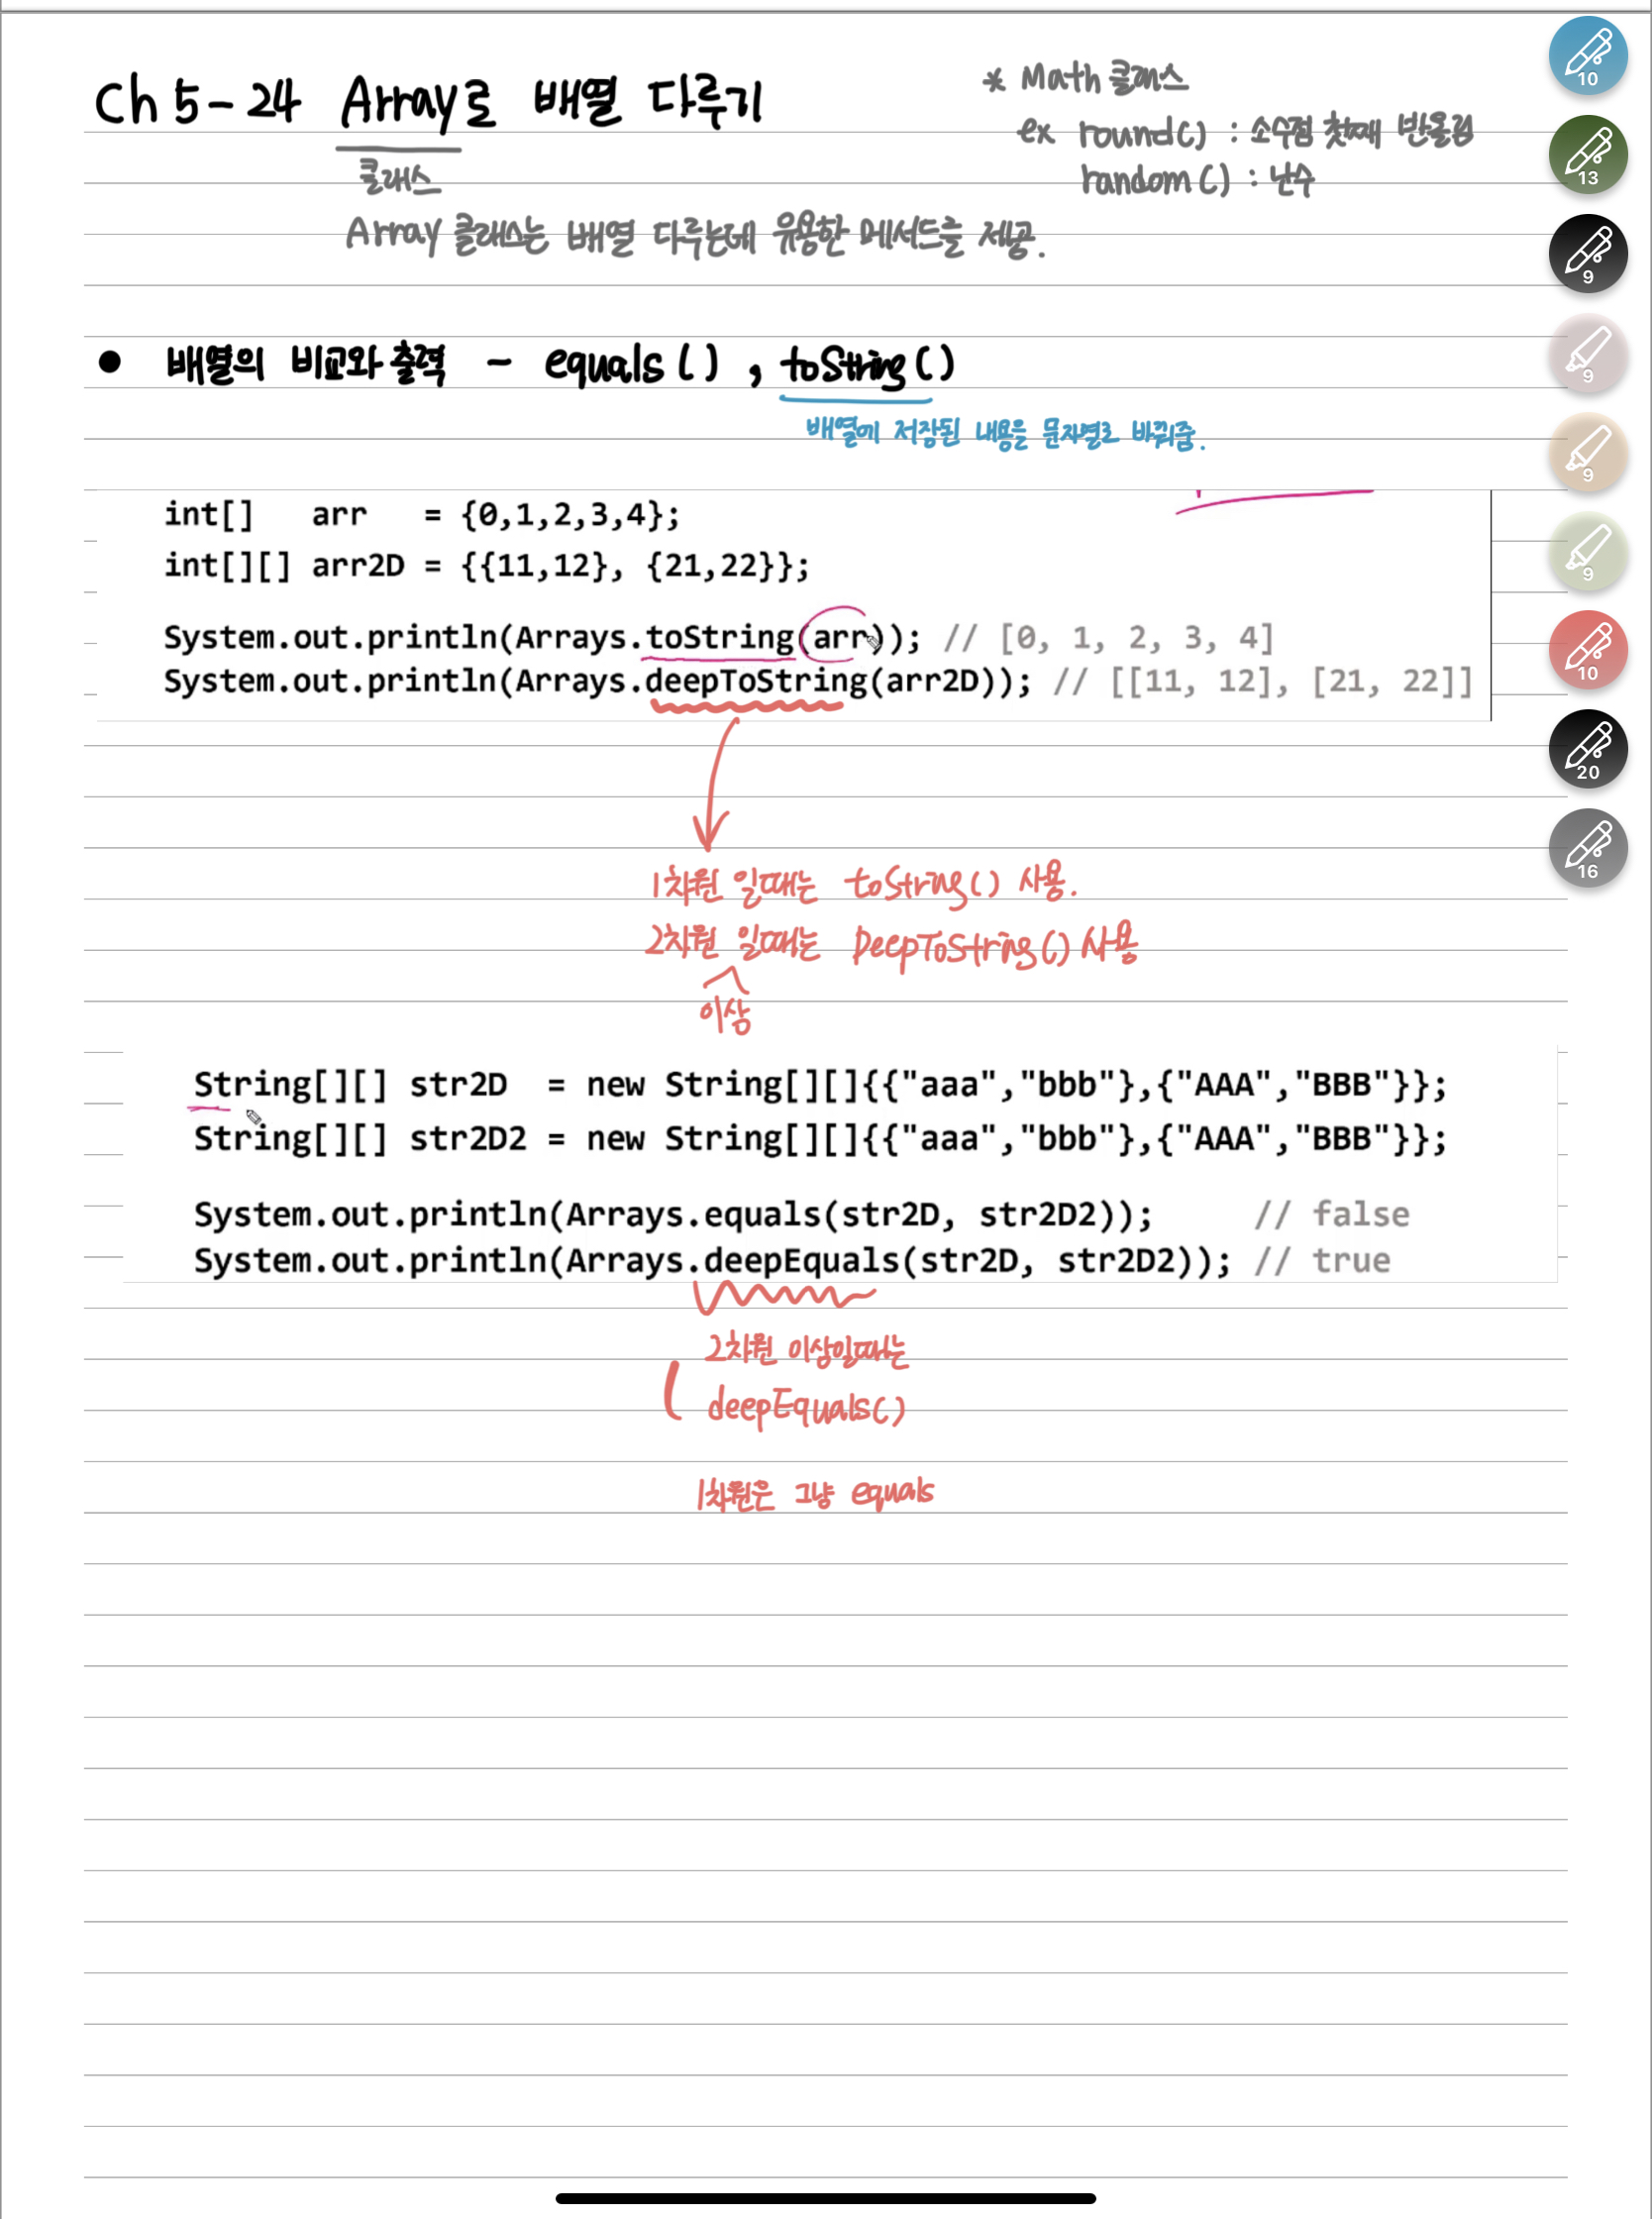 Ch 5-24 Array로 배열 다루기
클래스
Array 클래스는 배열 다루는데 유용한 메서드를 제공.
* Math 클래스
ex round() : 소수점 첫째 반올림
random() : 난수
● 배열의 비교와 출력 - equals(), toString()
배열에 저장된 내용을 문자열로 바꿔줌.
int[] arr = {0,1,2,3,4};
int[][] arr2D = {{11,12}, {21,22}};
System.out.println(Arrays.toString(arr)); // [0, 1, 2, 3, 4]
System.out.println(Arrays.deepToString(arr2D)); // [[11, 12], [21, 22]]
1차원 일때는 toString() 사용.
2차원 일때는 DeepToString() 사용
이상
String[][] str2D = new String[][]{{"aaa","bbb"},{"AAA","BBB"}};
String[][] str2D2 = new String[][]{{"aaa","bbb"},{"AAA","BBB"}};
System.out.println(Arrays.equals(str2D, str2D2)); // false
System.out.println(Arrays.deepEquals(str2D, str2D2)); // true
2차원 이상일때는
deepEquals()
1차원은 그냥 equals
10
13
9
9
9
9
10
20
16